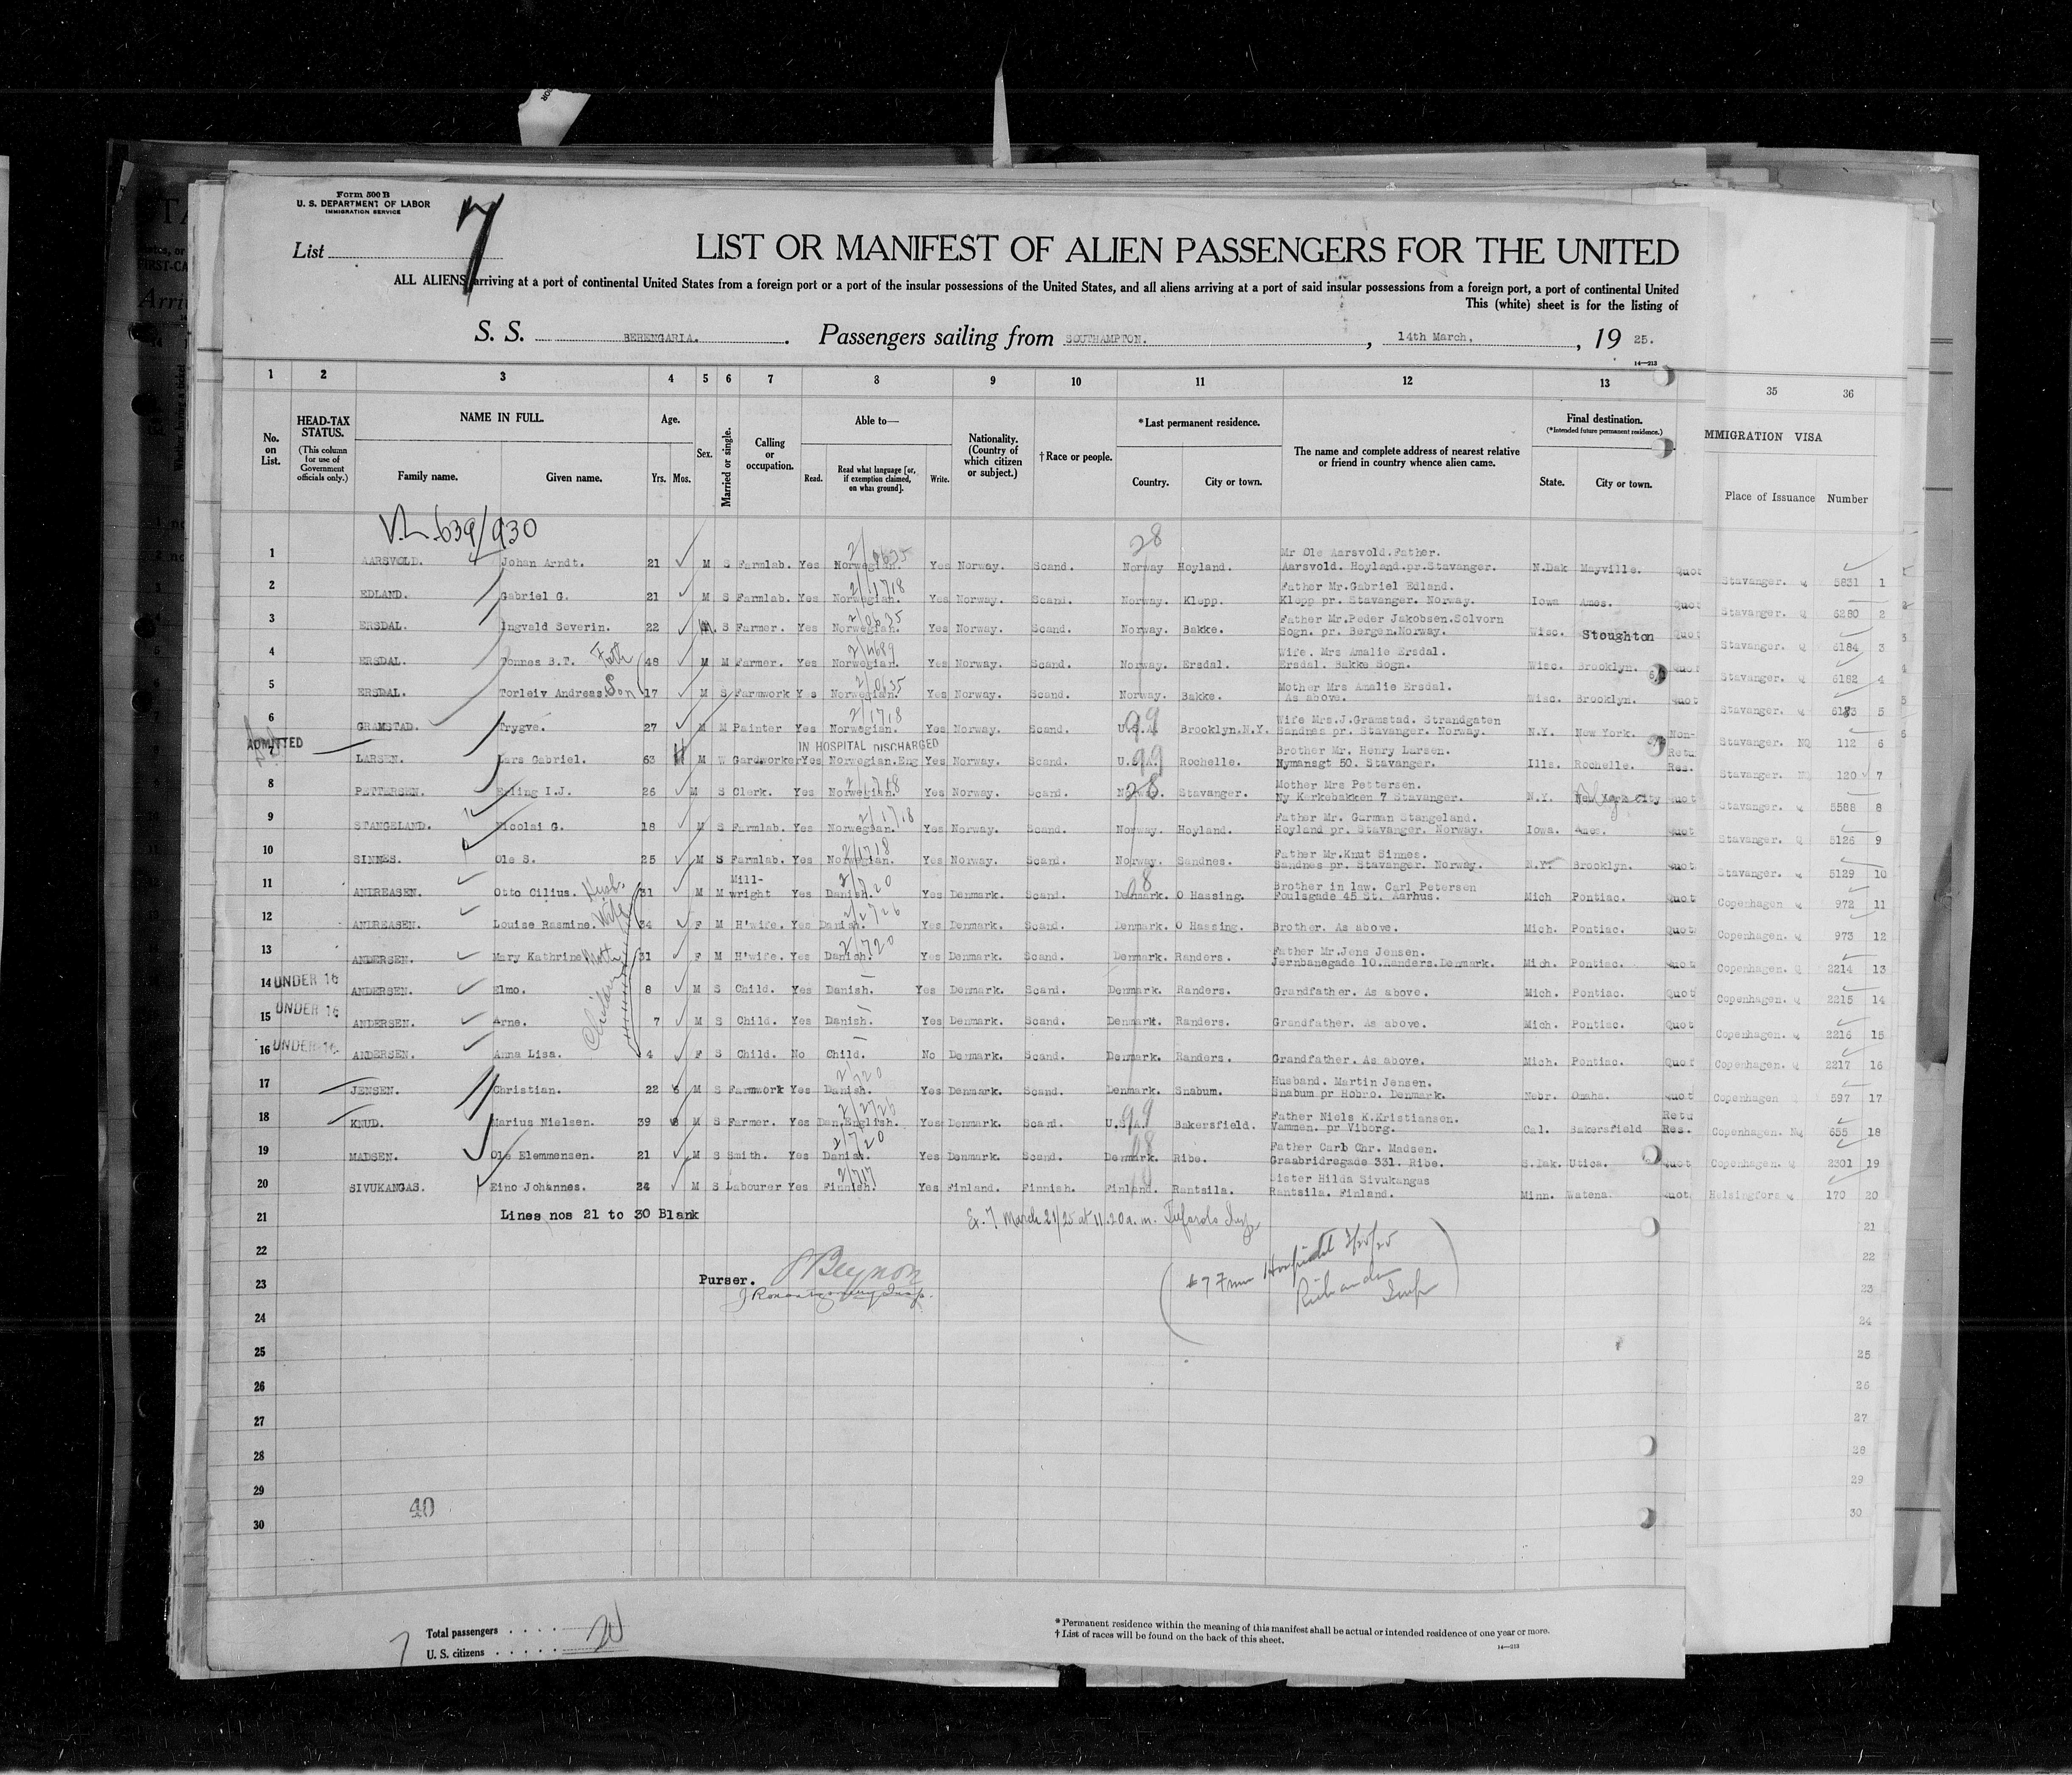 Form 500 B
U. S. DEPARTMENT OF LABOR
IMMIGRATION SERVICE
List 7
LIST OR MANIFEST OF ALIEN PASSENGERS FOR THE UNITED
ALL ALIENS arriving at a port of continental United States from a foreign port or a port of the insular possessions of the United States, and all aliens arriving at a port of said insular possessions from a foreign port, a port of continental United
This (white) sheet is for the listing of
S. S. BERENGARIA. Passengers sailing from SOUTHAMPTON. , 14th March, , 19 25.
14—213
1 2 3 4 5 6 7 8 9 10 11 12 13 35 36
No. on List. HEAD-TAX STATUS. (This column for use of Government officials only.) NAME IN FULL. Family name. Given name. Age. Yrs. Mos. Sex. Married or single. Calling or occupation. Able to— Read. Read what language [or, if exemption claimed, on what ground]. Write. Nationality. (Country of which citizen or subject.) †Race or people. *Last permanent residence. Country. City or town. The name and complete address of nearest relative or friend in country whence alien came. Final destination. (*Intended future permanent residence.) State. City or town. MMIGRATION VISA Place of Issuance Number
639/930
28
1 AARSVOLD. Johan Arndt. 21 M S Farmlab. Yes Norwegian. Yes Norway. Scand. Norway Hoyland. Mr Ole Aarsvold.Father. Aarsvold. Hoyland.pr.Stavanger. N.Dak Mayville. Quot Stavanger. Q 5831 1
2 EDLAND. Gabriel G. 21 M S Farmlab. Yes Norwegian. Yes Norway. Scand. Norway. Klepp. Father Mr.Gabriel Edland. Klepp pr. Stavanger. Norway. Iowa Ames. Quot Stavanger. Q 6280 2
3 ERSDAL. Ingvald Severin. 22 M S Farmer. Yes Norwegian. Yes Norway. Scand. Norway. Bakke. Father Mr.Peder Jakobsen.Solvorn Sogn. pr. Bergen.Norway. Wisc. Stoughton Quot Stavanger. Q 6184 3
4 ERSDAL. Tonnes B.T. Fath 48 M M Farmer. Yes Norwegian. Yes Norway. Scand. Norway. Ersdal. Wife. Mrs Amalie Ersdal. Ersdal. Bakke Sogn. Wisc. Brooklyn. Quot Stavanger. Q 6182 4
5 ERSDAL. Torleiv Andreas. Son 17 M S Farmwork Yes Norwegian. Yes Norway. Scand. Norway. Bakke. Mother Mrs Amalie Ersdal. As above. Wisc. Brooklyn. Quot Stavanger. Q 6183 5
6 GRAMSTAD. Trygve. 27 M M Painter Yes Norwegian. Yes Norway. Scand. U.S.A. 99 Brooklyn.N.Y. Wife Mrs.J.Gramstad. Strandgaten Sandnes pr. Stavanger. Norway. N.Y. New York. Non- Stavanger. NQ 112 6
ADMITTED IN HOSPITAL DISCHARGED
7 LARSEN. Lars Gabriel. 63 M W Gardworker Yes Norwegian.Eng Yes Norway. Scand. U.S.A. 99 Rochelle. Brother Mr. Henry Larsen. Nymansgt 50. Stavanger. Ills. Rochelle. Retu Res. Stavanger. NQ 120 7
8 PETTERSEN. Erling I.J. 26 M S Clerk. Yes Norwegian. Yes Norway. Scand. Norway. 28 Stavanger. Mother Mrs Pettersen. Ny Kerkebakken 7 Stavanger. N.Y. New York City Quot Stavanger. Q 5588 8
9 STANGELAND. Nicolai G. 18 M S Farmlab. Yes Norwegian. Yes Norway. Scand. Norway. Hoyland. Father Mr. Garman Stangeland. Hoyland pr. Stavanger. Norway. Iowa. Ames. Quot Stavanger. Q 5126 9
10 SINNES. Ole S. 25 M S Farmlab. Yes Norwegian. Yes Norway. Scand. Norway. Sandnes. Father Mr.Knut Sinnes. Sandnes pr. Stavanger. Norway. N.Y. Brooklyn. Quot Stavanger. Q 5129 10
11 ANDREASEN. Otto Cilius. Husb. 31 M M Mill-wright Yes Danish. Yes Denmark. Scand. Denmark. O Hassing. Brother in law. Carl Petersen Foulsgade 45 St. Aarhus. Mich Pontiac. Quot Copenhagen Q 972 11
12 ANDREASEN. Louise Rasmine. Wife 34 F M H'wife. Yes Danish. Yes Denmark. Scand. Denmark. O Hassing. Brother. As above. Mich. Pontiac. Quot Copenhagen. Q 973 12
13 ANDERSEN. Mary Kathrine Moth 31 F M H'wife. Yes Danish. Yes Denmark. Scand. Denmark. Randers. Father Mr.Jens Jensen. Jernbanegade 10.Randers.Denmark. Mich. Pontiac. Quot Copenhagen. Q 2214 13
14 UNDER 16 ANDERSEN. Elmo. Children 8 M S Child. Yes Danish. Yes Denmark. Scand. Denmark. Randers. Grandfather. As above. Mich. Pontiac. Quot Copenhagen. Q 2215 14
15 UNDER 16 ANDERSEN. Arne. 7 M S Child. Yes Danish. Yes Denmark. Scand. Denmark. Randers. Grandfather. As above. Mich. Pontiac. Quot Copenhagen. Q 2216 15
16 UNDER 16 ANDERSEN. Anna Lisa. 4 F S Child. No Child. No Denmark. Scand. Denmark. Randers. Grandfather. As above. Mich. Pontiac. Quot Copenhagen. Q 2217 16
17 JENSEN. Christian. 22 6 M S Farmwork Yes Danish. Yes Denmark. Scand. Denmark. Snabum. Husband. Martin Jensen. Snabum pr Hobro. Denmark. Nebr. Omaha. Quot Copenhagen Q 597 17
18 KNUD. Marius Nielsen. 39 M S Farmer. Yes Dan.English. Yes Denmark. Scand. U.S.A. 99 Bakersfield. Father Niels K.Kristiansen. Vammen. pr Viborg. Cal. Bakersfield Retu Res. Copenhagen. NQ 655 18
19 MADSEN. Ole Elemmensen. 21 M S Smith. Yes Danish. Yes Denmark. Scand. Denmark. Ribe. Father Carb Chr. Madsen. Graabridregade 331. Ribe. S.Dak. Utica. Quot Copenhagen. Q 2301 19
20 SIVUKANGAS. Eino Johannes. 24 M S Labourer Yes Finnish. Yes Finland. Finnish. Finland. Rantsila. Sister Hilda Sivukangas Rantsila. Finland. Minn. Watena. Quot Helsingfors Q 170 20
21 Lines nos 21 to 30 Blank Ex. 7 March 21/25 at 11.20 a.m. 21
22 22
23 Purser. Beynon #7 From Hospital 3/20/25 23
24 24
25 25
26 26
27 27
28 28
29 29
30 30
40
Total passengers . . . .
U. S. citizens . . . . .
7
* Permanent residence within the meaning of this manifest shall be actual or intended residence of one year or more.
† List of races will be found on the back of this sheet.
14—213